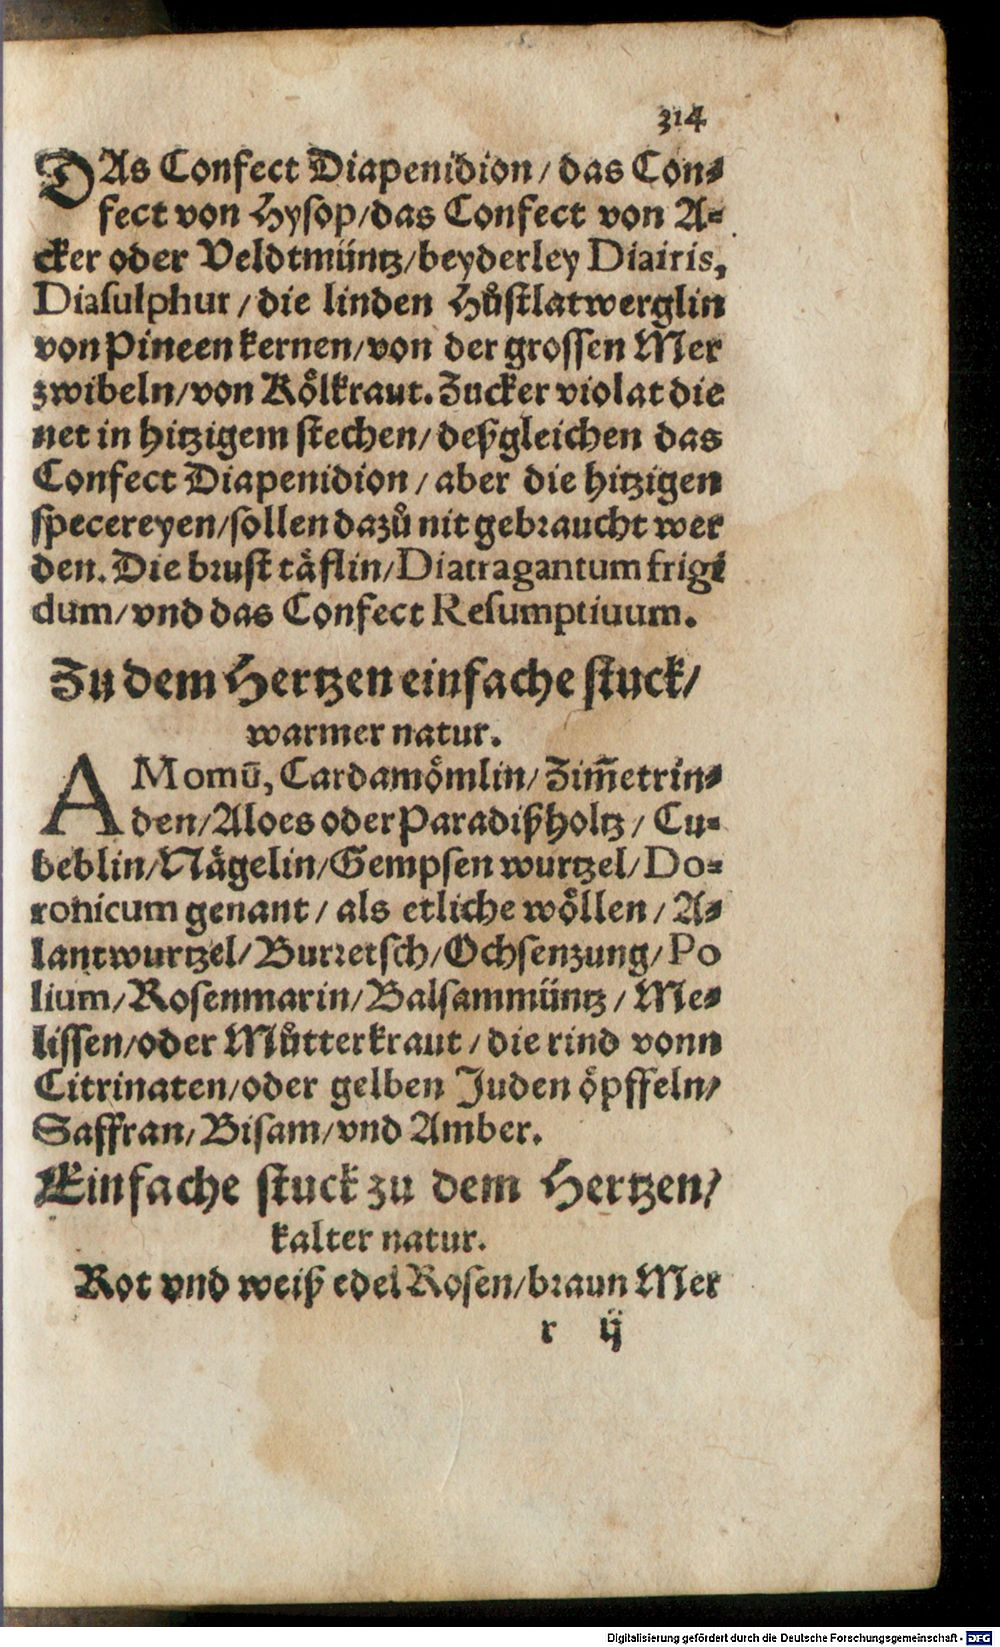 314
DAs Confect Diapenidion / das Con⸗
fect von Hysop/das Confect von A⸗
cker oder Veldtmüntz/beyderley Diairis,
Diasulphur / die linden Hůstlatwerglin
von Pineenkernen/von der grossen Mer
zwibeln/von Kölkraut. Zucker violat die
net in hitzigem stechen/deßgleichen das
Confect Diapenidion / aber die hitzigen
specereyen/sollen dazů nit gebraucht wer
den. Die brust täflin/Diatragantum frigi
dum/vnd das Confect Resumptiuum.
Zu dem Hertzen einfache stuck/
warmer natur.
AMomū, Cardamömlin/Zim̃etrin⸗
den/Aloes oder Paradißholtz / Cu⸗
beblin/Nägelin/Gempsen wurtzel/Do⸗
ronicum genant / als etliche wöllen / A⸗
lantwurtzel/Burretsch/Ochsenzung/Po
lium/Rosenmarin/Balsammüntz / Me⸗
lissen/oder Můtterkraut / die rind vonn
Citrinaten/oder gelben Juden öpffeln/
Saffran/Bisam/vnd Amber.
Einfache stuck zu dem Hertzen/
kalter natur.
Rot vnd weiß edel Rosen/braun Mer
r ij
Digitalisierung gefördert durch die Deutsche Forschungsgemeinschaft - DFG